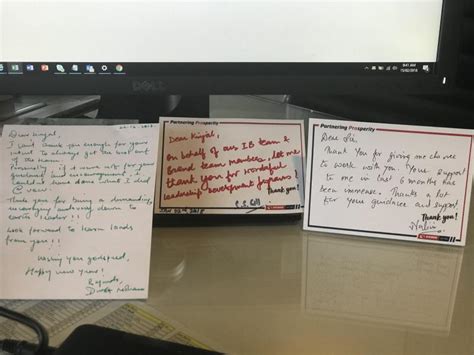 9:41 AM
15/02/2018
DELL
Dear Kinjal,
I can't thank you enough for your
want to always get the best out
of the team.
Personally if it were not for your
and encouragement, I
couldn't have done what I did
@
Thank you for being a demanding,
and very down to
earth leader!!
Look forward to learn loads
from you!!
Wishing you godspeed,
Happy new year!
Regards,
Partnering Prosperity
Dear Kinjal,
On behalf of our I.B team &
Brand team members, let me
thank you for wonderful
Leadership Development program!
Thank you!
Jan 2018
Partnering Prosperity
Dear Sir,
Thank You for giving me chance
to work with you. Your support
to me in last 6 months has
been immense. Thanks a lot
for your guidance and support
Thank you!